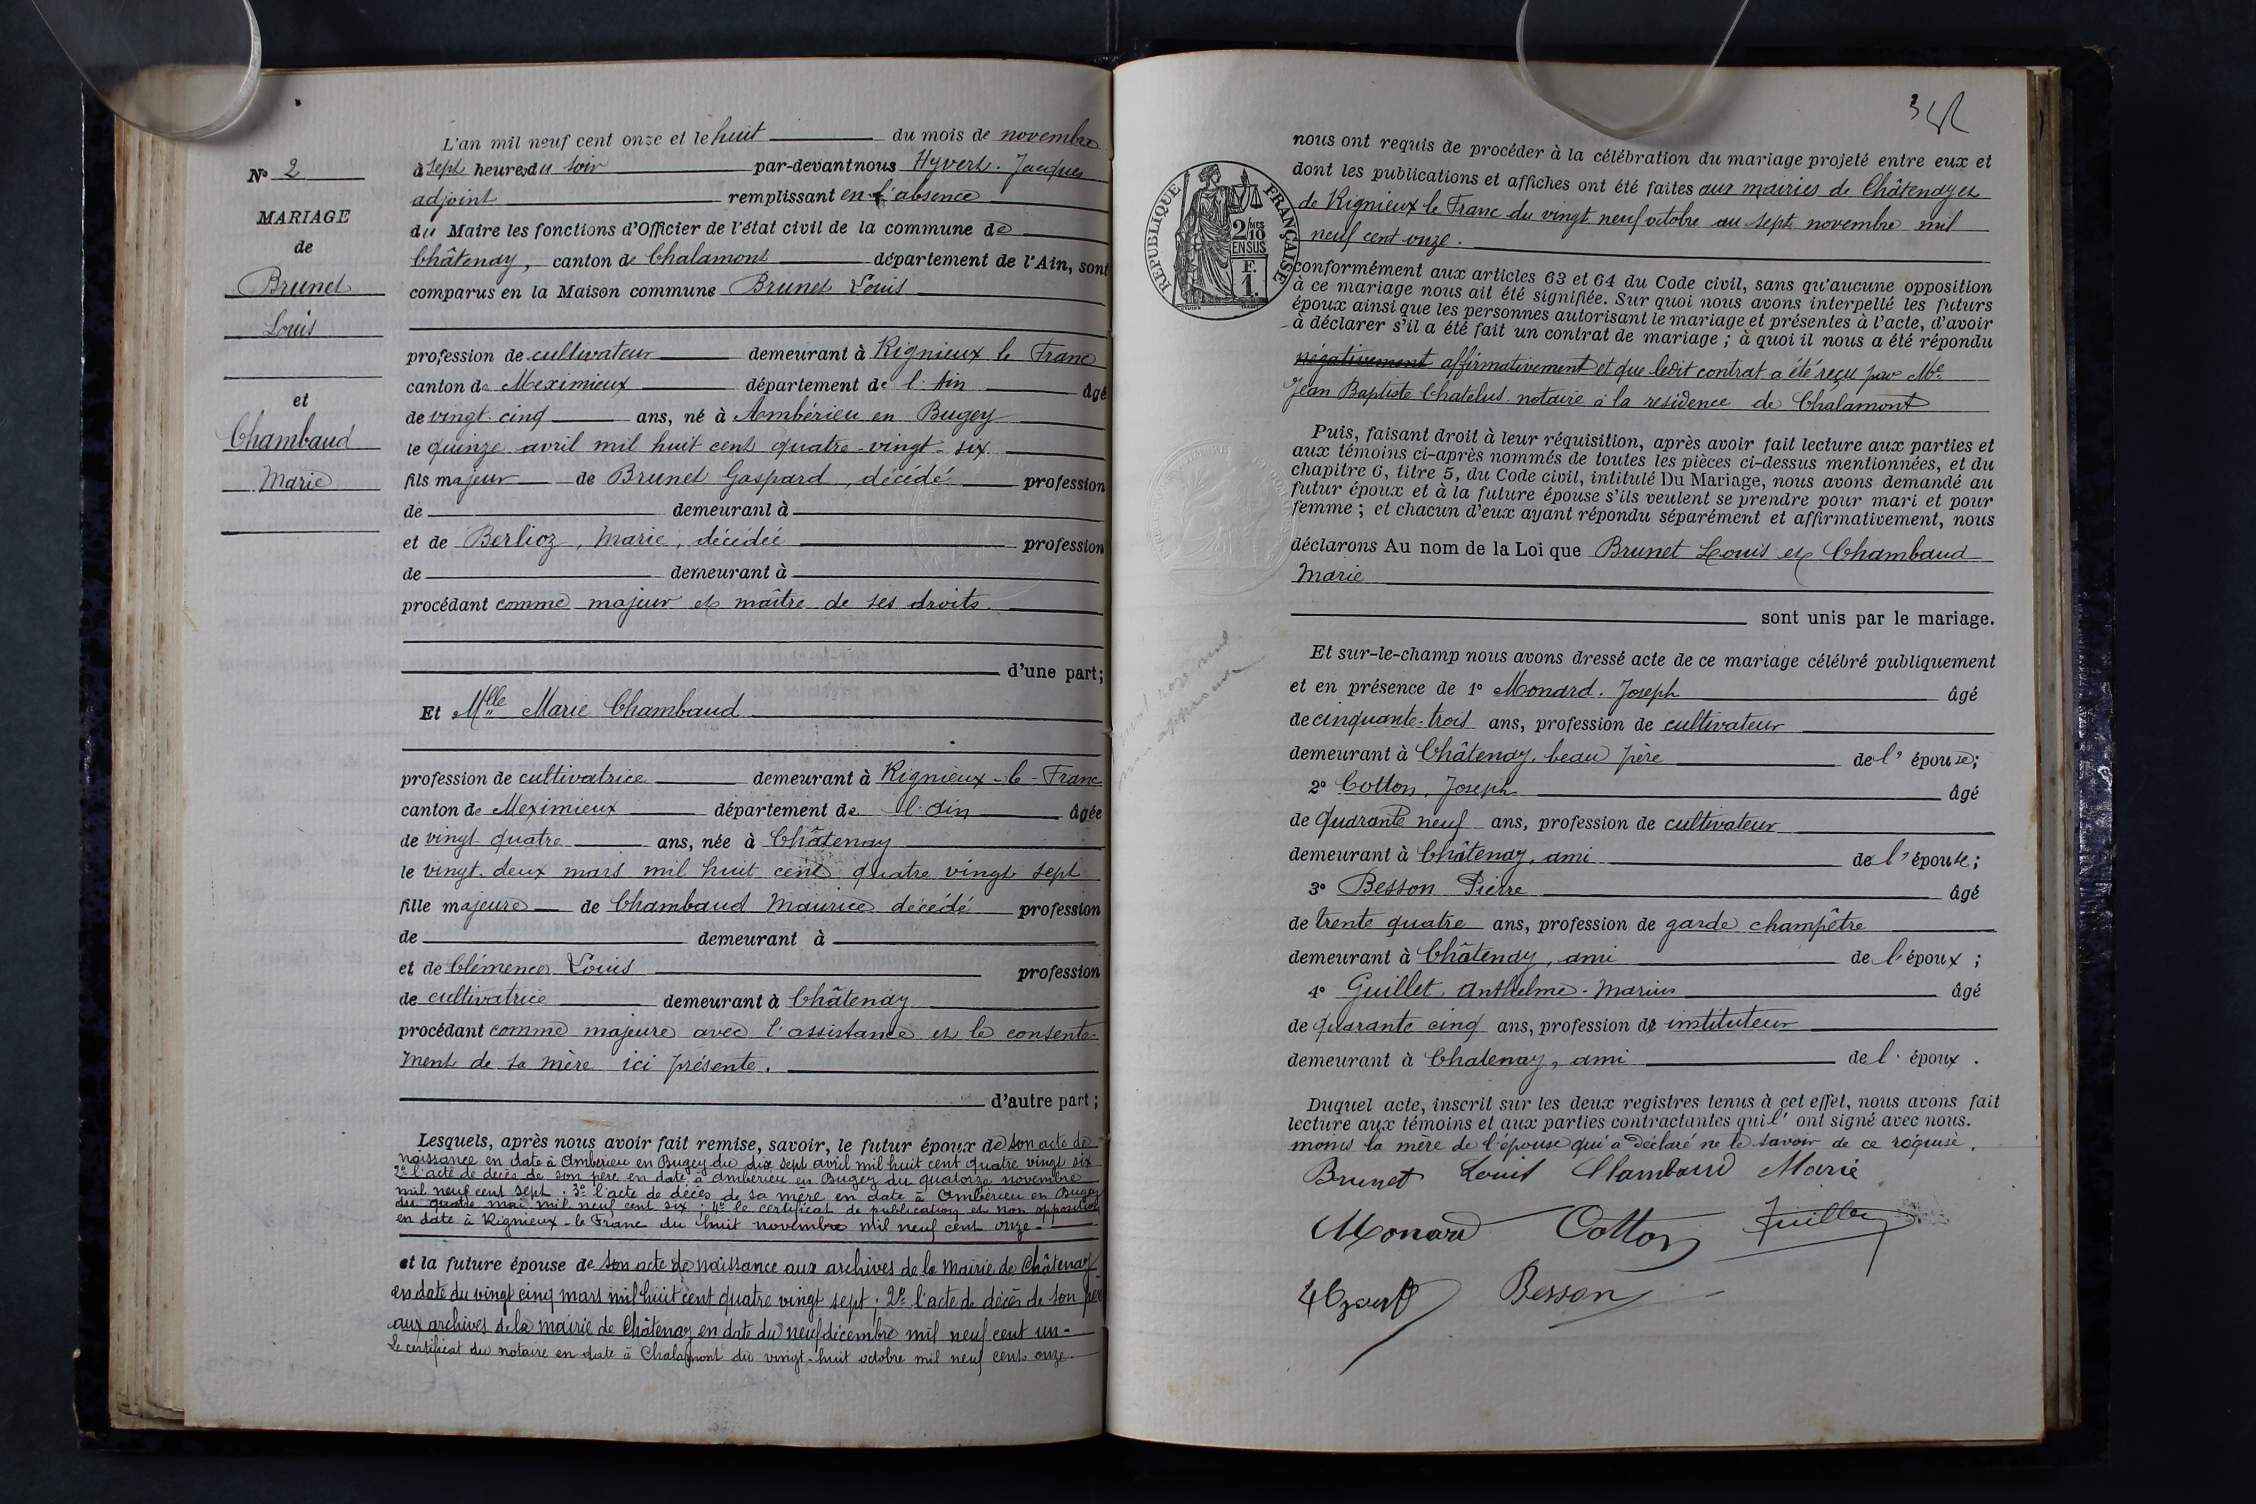 L'an mil neuf cent onze et le huit du mois de novembre
N° 2
à sept heures du soir par-devant nous Hyvert. Jacques
adjoint remplissant en l'absence
MARIAGE
du Maire les fonctions d'Officier de l'état civil de la commune de
de
Châtenay, canton de Chalamont département de l'Ain, sont
Brunet
comparus en la Maison commune Brunet Louis
Louis
profession de cultivateur demeurant à Rignieux le Franc
canton de Meximieux département de l'Ain âgé
et
de vingt-cinq ans, né à Ambérieu en Bugey
Chambaud
le quinze avril mil huit cent quatre-vingt-six
Marie
fils majeur de Brunet Gaspard, décédé profession
de demeurant à
et de Berlioz, Marie, décédée profession
de demeurant à
procédant comme majeur et maître de ses droits.
d'une part;
Et Mlle Marie Chambaud
profession de cultivatrice demeurant à Rignieux-le-Franc
canton de Meximieux département de l'Ain âgée
de vingt quatre ans, née à Châtenay
le vingt-deux mars mil huit cent quatre vingt sept
fille majeure de Chambaud Maurice décédé profession
de demeurant à
et de Clémence Louis profession
de cultivatrice demeurant à Châtenay
procédant comme majeure avec l'assistance et le consente-
ment de sa mère ici présente.
d'autre part;
Lesquels, après nous avoir fait remise, savoir, le futur époux de son acte de
naissance en date à Ambérieu en Bugey du dix sept avril mil huit cent quatre vingt six
2° l'acte de décès de son père en date à Ambérieu en Bugey du quatorze novembre
mil neuf cent sept; 3° l'acte de décès de sa mère en date à Ambérieu en Bugey
du quatre mai mil neuf cent six; 4° le certificat de publication et non opposition
en date à Rignieux-le Franc du huit novembre mil neuf cent onze-
et la future épouse de son acte de naissance aux archives de la Mairie de Châtenay
en date du vingt cinq mars mil huit cent quatre vingt sept; 2° l'acte de décès de son père
aux archives de la mairie de Châtenay en date du neuf décembre mil neuf cent un-
Le certificat du notaire en date à Chalamont du vingt-huit octobre mil neuf cent onze
nous ont requis de procéder à la célébration du mariage projeté entre eux et
dont les publications et affiches ont été faites aux mairies de Châtenay et
de Rignieux le Franc du vingt neuf octobre au sept novembre mil
neuf cent onze.
RÉPUBLIQUE FRANÇAISE
2/10 MES
EN SUS
F.
1.
conformément aux articles 63 et 64 du Code civil, sans qu'aucune opposition
à ce mariage nous ait été signifiée. Sur quoi nous avons interpellé les futurs
époux ainsi que les personnes autorisant le mariage et présentes à l'acte, d'avoir
à déclarer s'il a été fait un contrat de mariage; à quoi il nous a été répondu
négativement affirmativement et que ledit contrat a été reçu par Me
Jean Baptiste Chatelus notaire à la résidence de Chalamont
Puis, faisant droit à leur réquisition, après avoir fait lecture aux parties et
aux témoins ci-après nommés de toutes les pièces ci-dessus mentionnées, et du
chapitre 6, titre 5, du Code civil, intitulé Du Mariage, nous avons demandé au
futur époux et à la future épouse s'ils veulent se prendre pour mari et pour
femme; et chacun d'eux ayant répondu séparément et affirmativement, nous
déclarons Au nom de la Loi que Brunet Louis et Chambaud
Marie
sont unis par le mariage.
Et sur-le-champ nous avons dressé acte de ce mariage célébré publiquement
et en présence de 1° Monard. Joseph âgé
de cinquante-trois ans, profession de cultivateur
demeurant à Châtenay, beau père de l'épouse;
2° Cotton, Joseph âgé
de quarante neuf ans, profession de cultivateur
demeurant à Châtenay, ami de l'épouse;
3° Besson Pierre âgé
de trente quatre ans, profession de garde champêtre
demeurant à Châtenay, ami de l'époux;
4° Guillet, Anthelme-Marius âgé
de quarante cinq ans, profession de instituteur
demeurant à Chatenay, ami de l'époux.
Duquel acte, inscrit sur les deux registres tenus à cet effet, nous avons fait
lecture aux témoins et aux parties contractantes qui l'ont signé avec nous.
moins la mère de l'épouse qui a déclaré ne le savoir de ce requise.
Brunet Louis Chambaud Marie
Monard Cotton Guillet
Besson